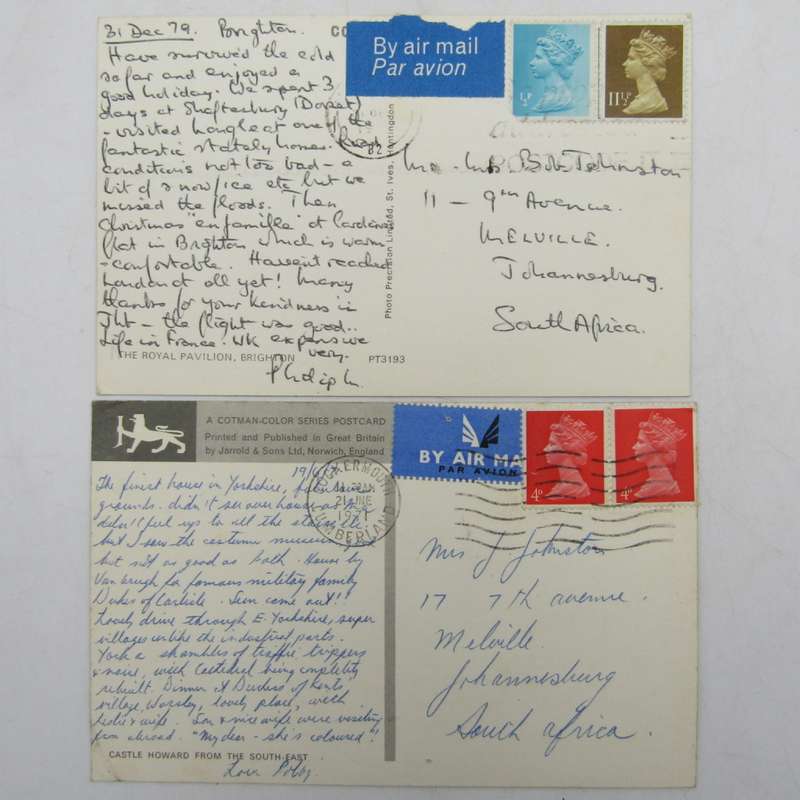 31 Dec 79. Brighton.
Have survived the cold
so far and enjoyed a
good holiday. We spent 3
days at Shaftesbury (Dorset)
- visited Longleat one of the
fantastic stately homes. Road
conditions not too bad - a
bit of snow/ice etc but we
missed the floods. Then
Christmas "en famille" at
flat in Brighton which is warm
- comfortable. Havent reached
London at all yet! Many
thanks for your kindness in
Jhb - the flight was good..
Life in France. UK expensive
very.
THE ROYAL PAVILION, BRIGHTON
PT3193
Photo Precision Limited, St. Ives, Huntingdon
CO
By air mail
Par avion
½P
11½P
82
Bob Johnston
11 - 9th Avenue.
MELVILLE.
Johannesburg.
South Africa.
A COTMAN-COLOR SERIES POSTCARD
Printed and Published in Great Britain
by Jarrold & Sons Ltd, Norwich, England
BY AIR MA
PAR AVION
4D
4D
COCKERMOUTH
21 JNE
CUMBERLAND
19/6/
The finest house in Yorkshire, fabulous
grounds. didn't see over house as M
didn't feel up to all the stairs etc
but I saw the costume museum
but not as good as Bath. House by
Vanbrugh for famous military family
Dukes of Carlisle. Sun came out!!
Lovely drive through E. Yorkshire, super
villages unlike the industrial parts.
York a shambles of traffic trippers
& noise, with Cathedral being completely
rebuilt. Dinner at Duchess of Kents
village, Worsley, lovely place, with
& wife. Son & nice wife were visiting
from abroad. "My dear - she's coloured"!
CASTLE HOWARD FROM THE SOUTH-EAST
Love
Mrs J. Johnston
17 7th avenue.
Melville.
Johannesburg
South Africa.